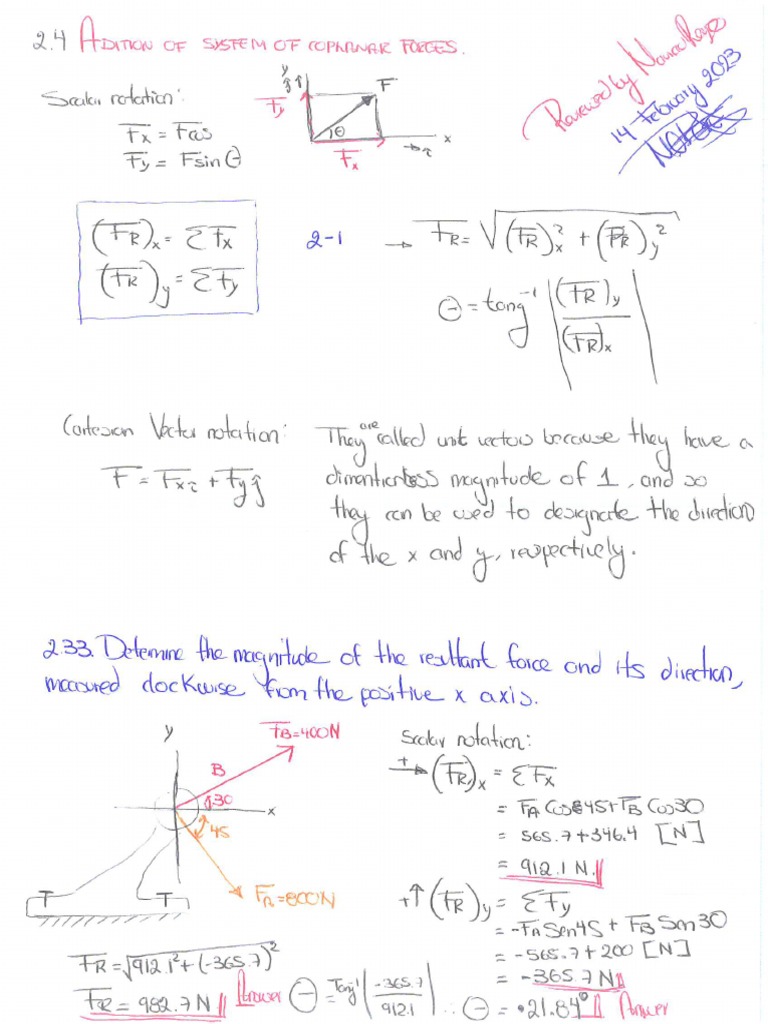 2.4 ADITION OF SYSTEM OF COPLANAR FORCES.
Reviewed by
14 February 2023
NOTES
Scalar notation:
Fx = Fcos
Fy = Fsin θ
y
j
Fy
F
θ
x
Fx
i
(FR)x = ΣFx
(FR)y = ΣFy
2-1 → FR = √(FR)x² + (FR)y²
θ = tang⁻¹ |(FR)y / (FR)x|
Cartesian Vector notation:
F = Fxi + Fyj
They are called unit vectors because they have a
dimentionless magnitude of 1, and so
they can be used to designate the direction
of the x and y, respectively.
2.33. Determine the magnitude of the resultant force and its direction,
measured clockwise from the positive x axis.
y
FB=400N
B
30
x
45
FA=800N
T
T
Scalar notation:
+→ (FR)x = ΣFx
= FA Cos 45 + FB Cos 30
= 565.7 + 346.4 [N]
= 912.1 N.
+↑ (FR)y = ΣFy
= -FA Sen 45 + FB Sen 30
= -565.7 + 200 [N]
= -365.7 N
FR = √912.1² + (-365.7)²
FR = 982.7 N Answer
θ = Tang⁻¹ |-365.7 / 912.1| ∴ θ = 21.84° Answer